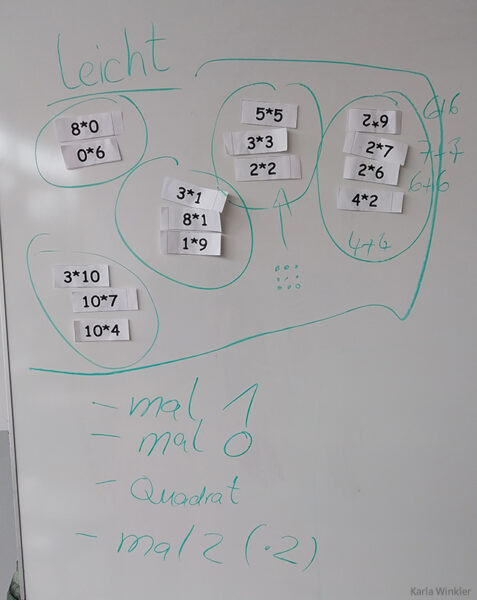 Leicht
8*0
0*6
5*5
3*3
2*2
9*2
6+6
2*7
7+7
2*6
6+6
4*2
4+4
3*1
8*1
1*9
3*10
10*7
10*4
- mal 1
- mal 0
- Quadrat
- mal 2 (·2)
Karla Winkler